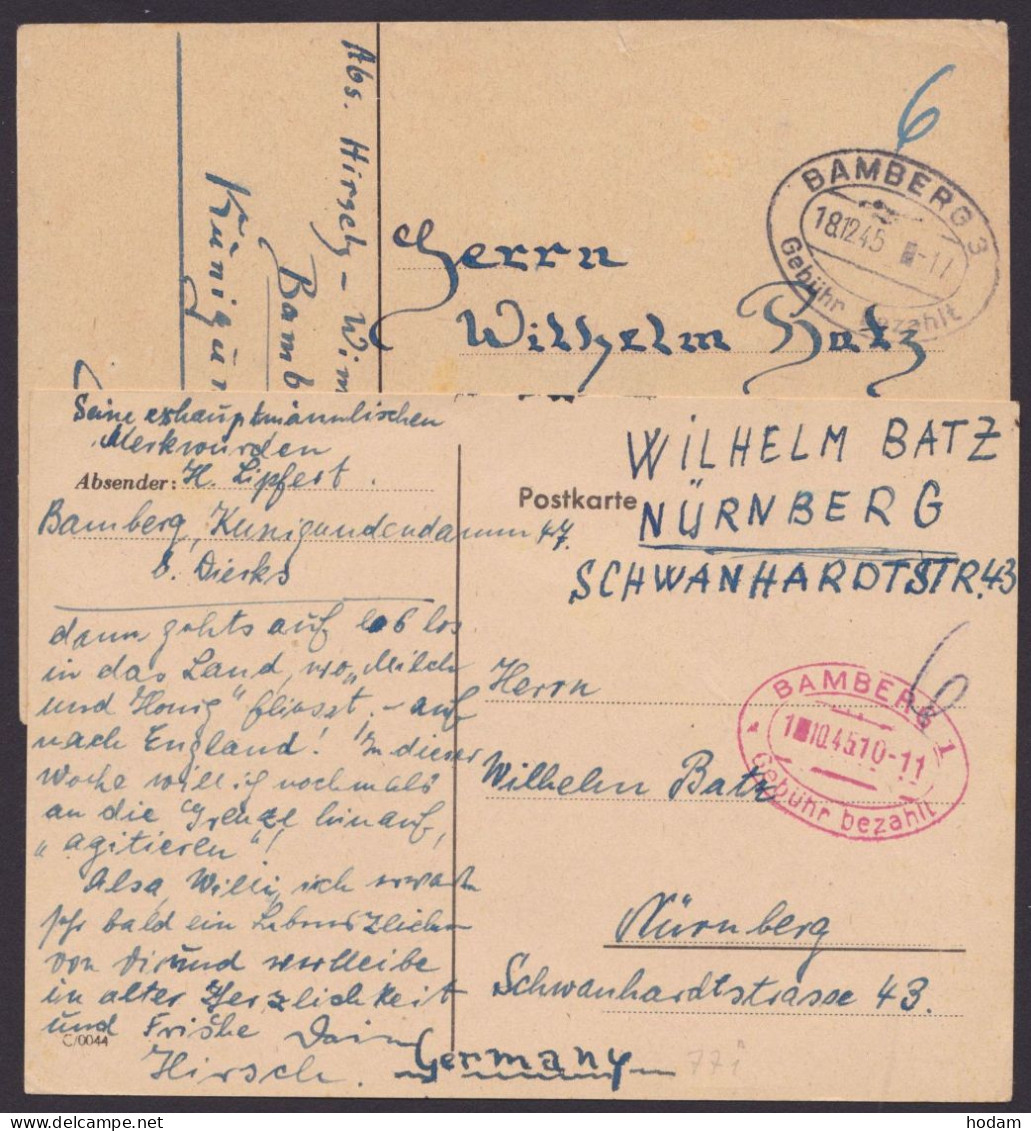 6
BAMBERG 3
18.12.45 -17
Gebühr bezahlt
Abs. Hirsch - Wim
Bamb
Kunigun
Herrn
Wilhelm Batz
Seine exhauptmännlischen
Merkwürden
Absender: H. Lipfert.
Bamberg, Kunigundendamm 47.
b. Dierks
dann gehts auf los
in das Land, wo „Milch
und Honig" fliesst, – auf
nach England! In dieser
Woche will ich nochmals
an die Grenze hinauf,
„agitieren"!
Also, Willi, ich erwarte
sehr bald ein Lebenszeichen
von dir und verbleibe
in alter Herzlichkeit
und Frishe Dein
Hirsch.
C/0044
Postkarte
WILHELM BATZ
NÜRNBERG
SCHWANHARDTSTR. 43
6
BAMBERG 1
10.45 10-11
Gebühr bezahlt
Herrn
Wilhelm Batz
Nürnberg
Schwanhardtstrasse 43.
Germany
771
hodam